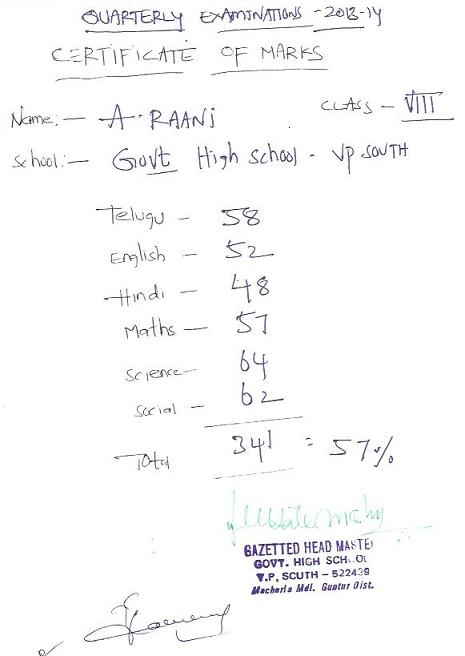 QUARTERLY EXAMINATIONS - 2013-14
CERTIFICATE OF MARKS
CLASS - VIII
Name:- A. RAANI
School:- Govt High School - VP SOUTH
Telugu - 58
English - 52
Hindi - 48
Maths - 57
Science - 64
Social - 62
Total 341 = 57%
GAZETTED HEAD MASTE
GOVT. HIGH SCHOOL
V.P. SOUTH - 522439
Macherla Mdl. Guntur Dist.